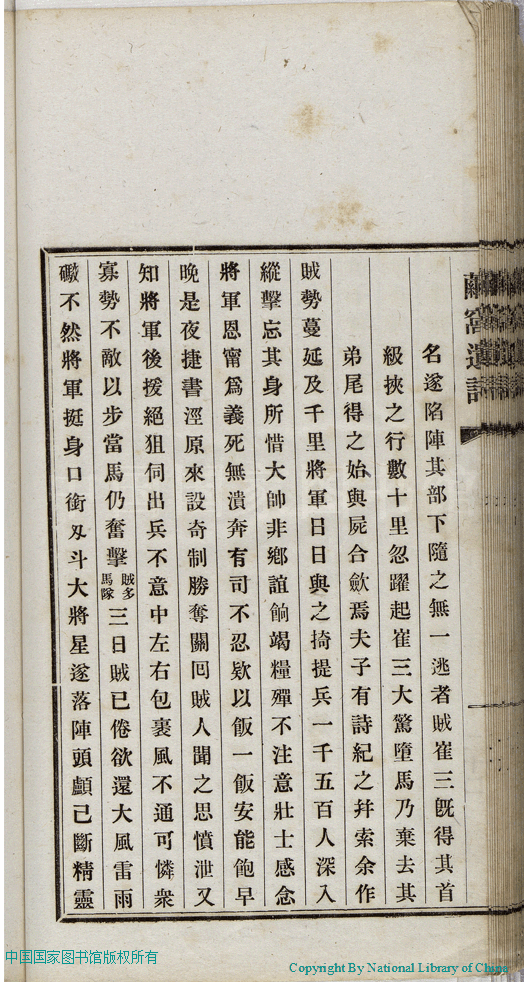 名遂陷陣其部下隨之無一逃者賊崔三旣得其首
級挾之行數十里忽躍起崔三大驚墮馬乃棄去其
弟尾得之始與屍合歛焉夫子有詩紀之幷索余作
賊勢蔓延及千里將軍日日與之掎提兵一千五百人深入
縱擊忘其身所惜大帥非鄉誼餉竭糧殫不注意壯士感念
將軍恩甯爲義死無潰奔有司不忍欵以飯一飯安能飽早
晚是夜捷書涇原來設奇制勝奪關囘賊人聞之思憤泄又
知將軍後援絕狙伺出兵不意中左右包裹風不通可憐衆
寡勢不敵以步當馬仍奮擊賊多馬隊三日賊已倦欲還大風雷雨
礮不然將軍挺身口銜刃斗大將星遂落陣頭顱已斷精靈
中国国家图书馆版权所有
Copyright By National Library of China